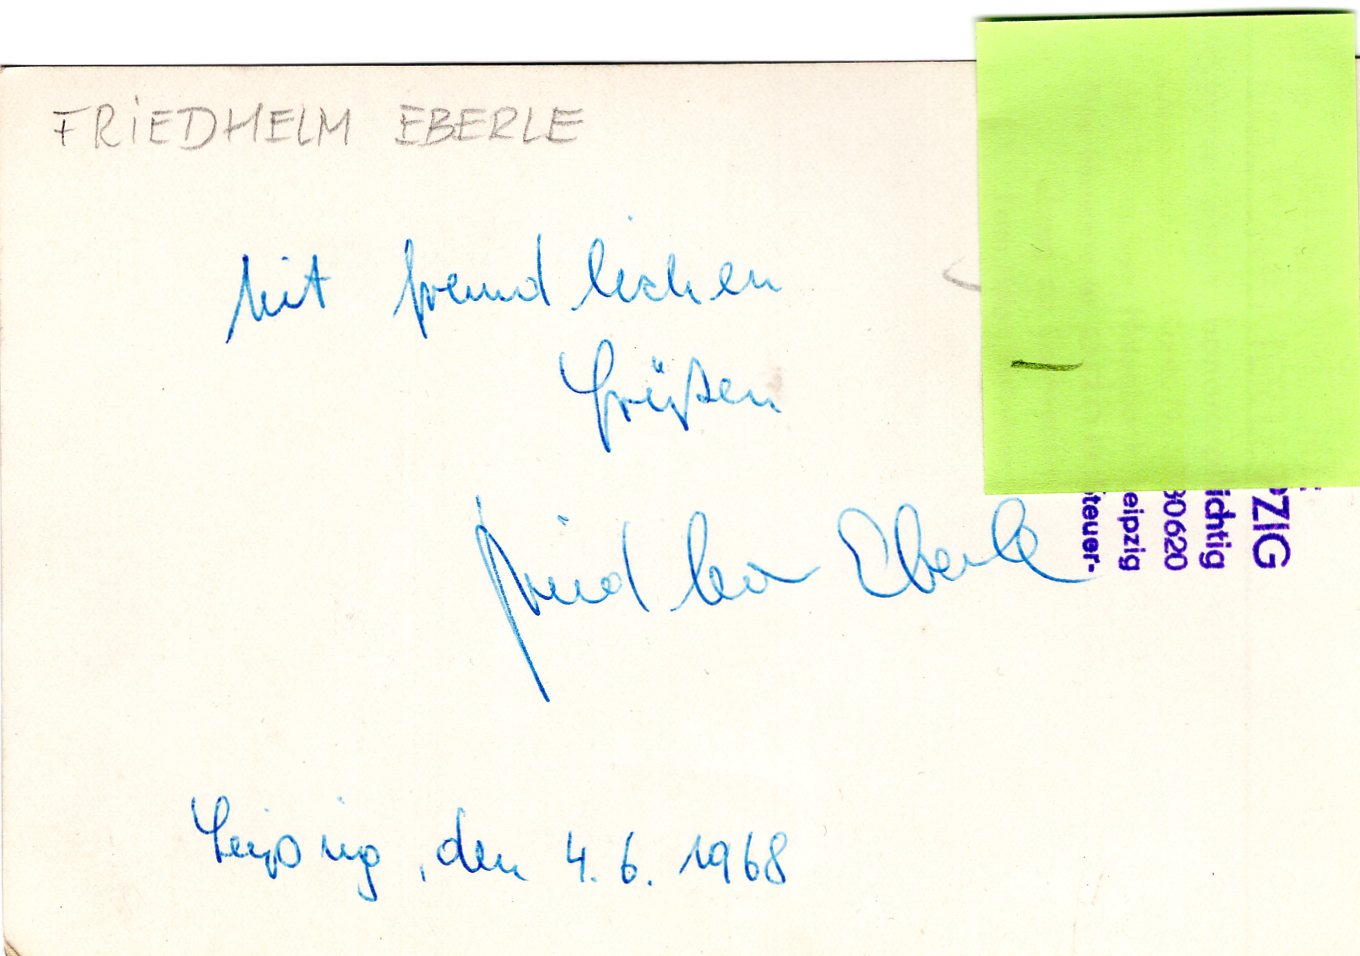 FRIEDHELM EBERLE
Mit freundlichen
Grüßen
Friedhelm Eberle
Leipzig, den 4.6.1968
PZIG
ichtig
80620
eipzig
teuer-